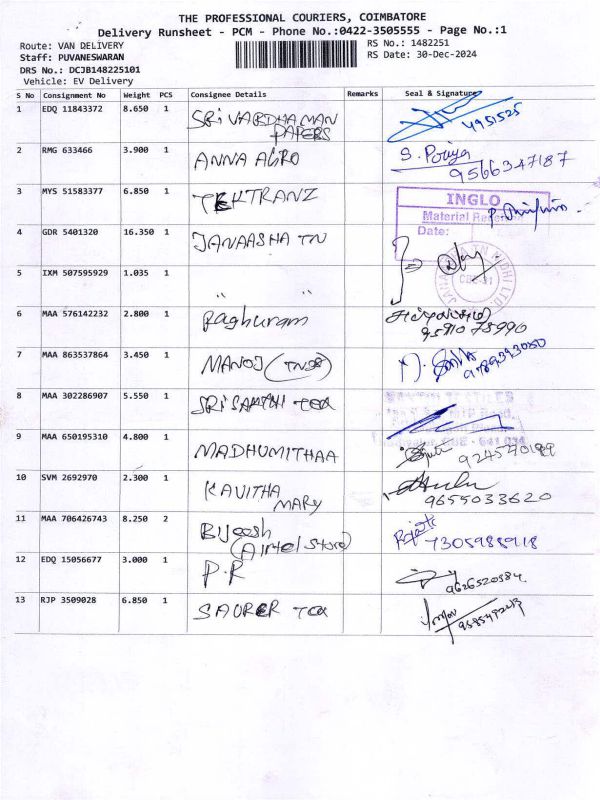 THE PROFESSIONAL COURIERS, COIMBATORE
Delivery Runsheet - PCM - Phone No.:0422-3505555 - Page No.:1
Route: VAN DELIVERY
RS No.: 1482251
Staff: PUVANESWARAN
RS Date: 30-Dec-2024
DRS No.: DCJB148225101
Vehicle: EV Delivery
S No Consignment No Weight PCS Consignee Details Remarks Seal & Signature
1 EDQ 11843372 8.650 1 SRI VARDHAMAN PAPERS 4951525
2 RMG 633466 3.900 1 ANNA AGRO S. Poriya 9566347187
3 MYS 51583377 6.850 1 TEKTRANZ
INGLO
Material
Date:
4 GDR 5401320 16.350 1 JANAASHA TN
5 IXM 507595929 1.035 1 " "
6 MAA 576142232 2.800 1 Raghuram
7 MAA 863537864 3.450 1 MANOJ (TNSB)
8 MAA 302286907 5.550 1 SRI SAKTHI TEX
9 MAA 650195310 4.800 1 MADHUMITHAA
10 SVM 2692970 2.300 1 KAVITHA MARY 9655033620
11 MAA 706426743 8.250 2 Bijeesh (Airtel Store) 7305988918
12 EDQ 15056677 3.000 1 P.R 9626520584
13 RJP 3509028 6.850 1 SAURER TEX